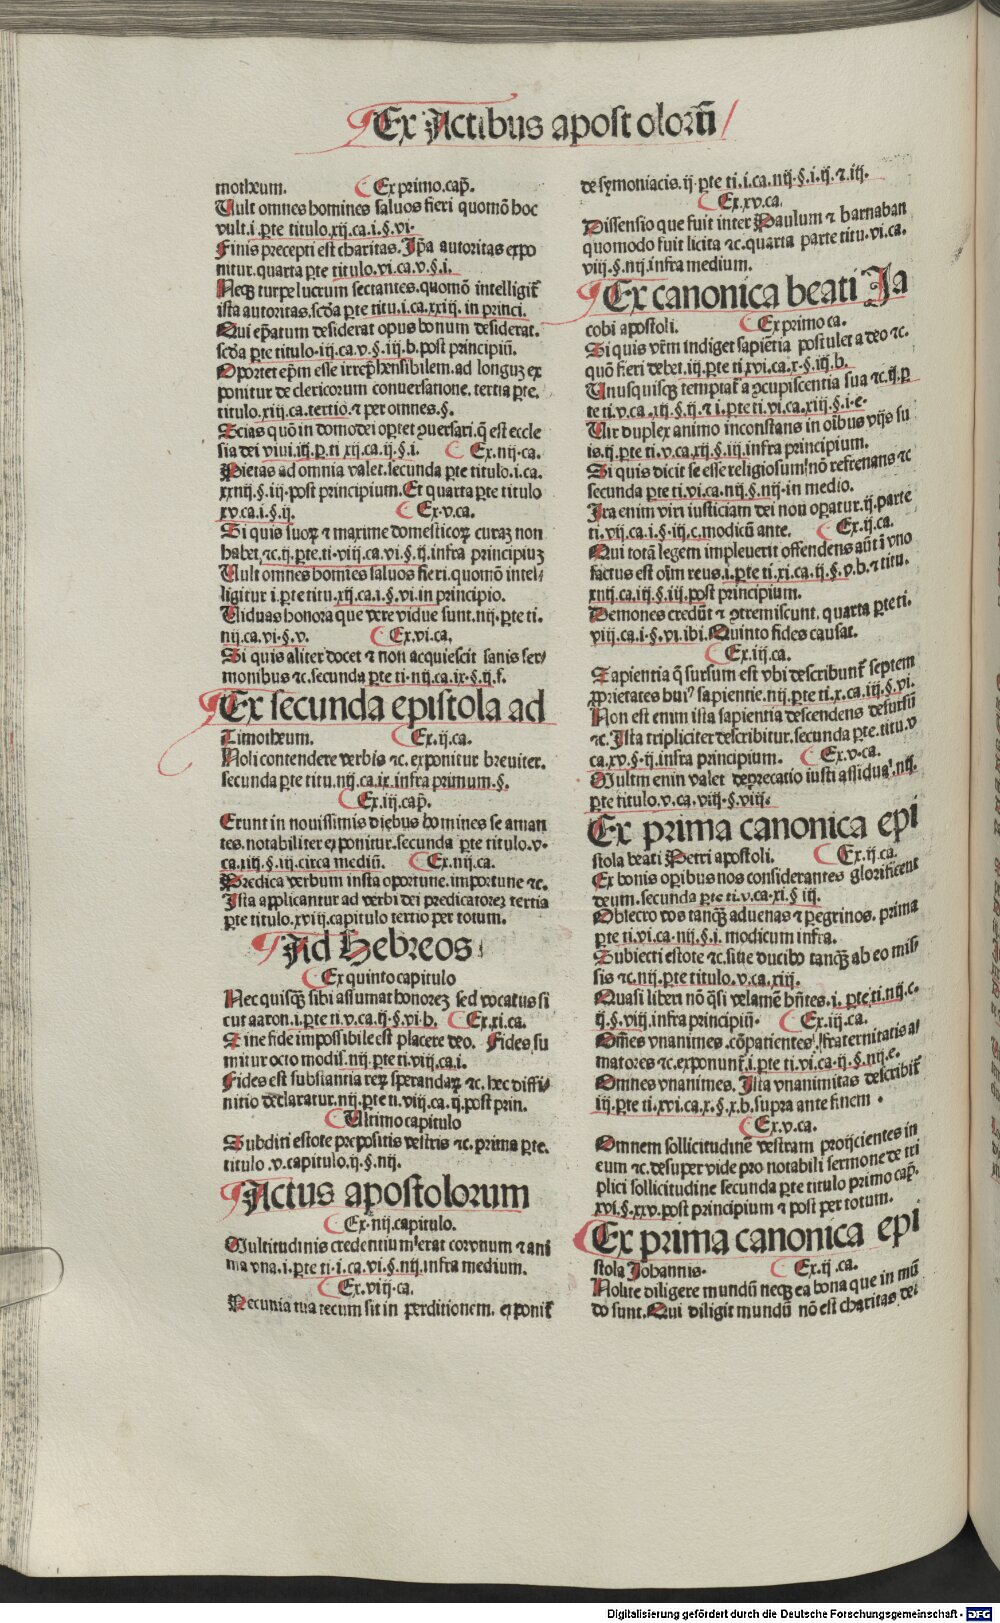 Ex Actibus apostolorū
motheum. Ex primo.cap̄.
Vult omnes homines saluos fieri quomō hoc
vult.i.ꝑte titulo.xij.ca.i.§.vi.
Finis precepti est charitas. Ip̄a autoritas expo
nitur.quarta ꝑte titulo.vi.ca.v.§.i.
Neqꝫ turpe lucrum sectantes.quomō intelligit̄
ista autoritas.scd̄a ꝑte titu.i.ca.xxiij. in princi.
Qui ep̄atum desiderat opus bonum desiderat.
scd̄a ꝑte titulo.iij.ca.v.§.iij.b.post principiū.
Oportet ep̄m esse irrep̄hensibilem.ad longuꝫ ex
ponitur de clericorum conuersatione. tertia ꝑte.
titulo.xiij.ca.tertio.⁊ per omnes.§.
Scias quō in domo dei oꝑtet ꝯuersari.q̄ est eccle
sia dei viui.iij.p.ti xij.ca.ij.§.i. Ex.iiij.ca.
Pietas ad omnia valet.secunda ꝑte titulo.i.ca.
xxiiij.§.iij.post principium.Et quarta ꝑte titulo
xv.ca.i.§.ij. Ex.v.ca.
Si quis suoꝝ ⁊ maxime domesticoꝝ curaꝫ non
habet.⁊c.ij.ꝑte.ti.viij.ca.vi.§.ij.infra principiuꝫ
Vult omnes homīes saluos fieri.quomō intel-
ligitur i.ꝑte titu.xij.ca.i.§.vi.in principio.
Viduas honora que vere vidue sunt.iiij.ꝑte ti.
iiij.ca.vi.§.v. Ex.vi.ca.
Si quis aliter docet ⁊ non acquiescit sanis ser-
monibus ⁊c.secunda ꝑte ti.iiij.ca.ix.§.ij.f.
Ex secunda epistola ad
Timotheum. Ex.ij.ca.
Noli contendere verbis ⁊c.exponitur breuiter.
secunda ꝑte titu.iiij.ca.ix.infra primum.§.
Ex.iij.cap̄.
Erunt in nouissimis diebus homines se aman
tes.notabiliter exponitur.secunda ꝑte titulo.v.
ca.xiij.§.iij.circa mediū. Ex.iiij.ca.
Predica verbum insta oportune.importune ⁊c.
Ista applicantur ad verbi dei predicatoreꝫ tertia
ꝑte titulo.xviij.capitulo tertio per totum.
Ad Hebreos.
Ex quinto capitulo
Nec quisqꝫ sibi assumat honoreꝫ sed vocatus si
cut aaron.i.ꝑte ti.v.ca.ij.§.vi.b. Ex.xi.ca.
Sine fide impossibile est placere deo. Fides su
mitur octo modis.iiij.ꝑte ti.viij.ca.i.
Fides est substantia reꝝ sperandaꝝ ⁊c.hec diffi-
nitio declaratur.iiij.ꝑte ti.viij.ca.ij.post prin.
Vltimo capitulo
Subditi estote prepositis vestris ⁊c.prima ꝑte.
titulo.v.capitulo.ij.§.iiij.
Actus apostolorum
Ex.iiij.capitulo.
Multitudinis credentium erat cor vnum ⁊ ani
ma vna.i.ꝑte ti.i.ca.vi.§.iiij.infra medium.
Ex.viij.ca.
Pecunia tua tecum sit in perditionem. exponit̄
de symoniacis.ij.ꝑte ti.i.ca.iiij.§.i.ij.⁊.iij.
Ex.xv.ca.
Dissensio que fuit inter Paulum ⁊ barnaban
quomodo fuit licita ⁊c.quarta parte titu.vi.ca.
viij.§.iiij.infra medium.
Ex canonica beati Ja
cobi apostoli. Ex primo ca.
Si quis vr̄m indiget sapientia postulet a deo ⁊c.
quō fieri debet.iij.ꝑte ti xvi.ca.x.§.iij.b.
Vnusquisqꝫ temptat̄ a ꝯcupiscentia sua ⁊c.ij.p
te ti.v.ca.xij.§.ij.⁊ i.ꝑte ti.vi.ca.xiij.§.i.e.
Vir duplex animo inconstans in oībus vijs su
is.ij.ꝑte ti.v.ca.xij.§.iij.infra principium.
Si quis dicit se esse religiosum/nō refrenans ⁊c
secunda ꝑte ti.vi.ca.iiij.§.iiij.in medio.
Ira enim viri iusticiam dei non oꝑatur.ij.parte
ti.vij.ca.i.§.iij.c.modicū ante. Ex.ij.ca.
Qui totā legem impleuerit offendens aūt ī vno
factus est oīm reus.i.ꝑte ti.xi.ca.ij.§.v.b.⁊ titu.
xviij.ca.iij.§.iij.post principium.
Demones credūt ⁊ ꝯtremiscunt. quarta ꝑte ti.
viij.ca.i.§.vi.ibi.Quinto fides causat.
Ex.iij.ca.
Sapientia q̄ sursum est vbi describunt̄ septem
ꝓprietates huiꝰ sapientie.iiij.ꝑte ti.x.ca.iij.§.vi.
Non est enim ista sapientia descendens desursū
⁊c. Ista tripliciter describitur.secunda ꝑte.titu.v
ca.xv.§.ij.infra principium. Ex.v.ca.
Multm enim valet deprecatio iusti assidua.iiij.
ꝑte titulo.v.ca.viij.§.viij.
Ex prima canonica epi
stola beati Petri apostoli. Ex.ij.ca.
Ex bonis oꝑibus nos considerantes glorificent
deum.secunda ꝑte ti.v.ca.xi.§ iij.
Obsecro vos tanqꝫ aduenas ⁊ ꝑegrinos. prima
ꝑte ti.vi.ca.iiij.§.i. modicum infra.
Subiecti estote ⁊c.siue ducibo tanqꝫ ab eo mis-
sis ⁊c.iiij.ꝑte titulo.v.ca.xiij.
Quasi liberi nō q̄si velamē hn̄tes.i.ꝑte ti.iiij.c.
ij.§.viij.infra principiū. Ex.iij.ca.
Om̄es vnanimes.cōpatientes/fraternitatis a-
matores ⁊c.exponunt̄.i.ꝑte ti.vi.ca.ij.§.iiij.e.
Omnes vnanimes. Ista vnanimitas describit̄
iij.ꝑte ti.xvi.ca.x.§.x.b.supra ante finem.
Ex.v.ca.
Omnem sollicitudinē vestram proijcientes in
eum ⁊c.desuper vide pro notabili sermone de tri
plici sollicitudine secunda ꝑte titulo primo cap̄.
xvi.§.xxv.post principium ⁊ post per totum.
Ex prima canonica epi
stola Johannis. Ex.ij.ca.
Nolite diligere mundū neqꝫ ea bona que in mū
do sunt. Qui diligit mundū nō est charitas dei
Digitalisierung gefördert durch die Deutsche Forschungsgemeinschaft - DFG